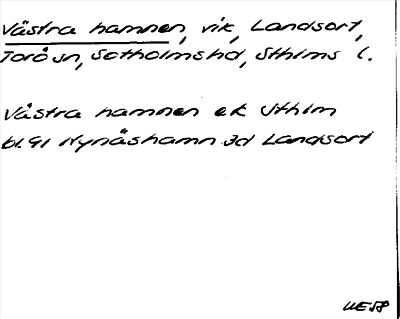 Västra hamnen, vik, Landsort,
Torö sn, Sotholms hd, Sthlms l.
Västra hamnen ek Sthlm
bl. 91 Nynäshamn 3d Landsort